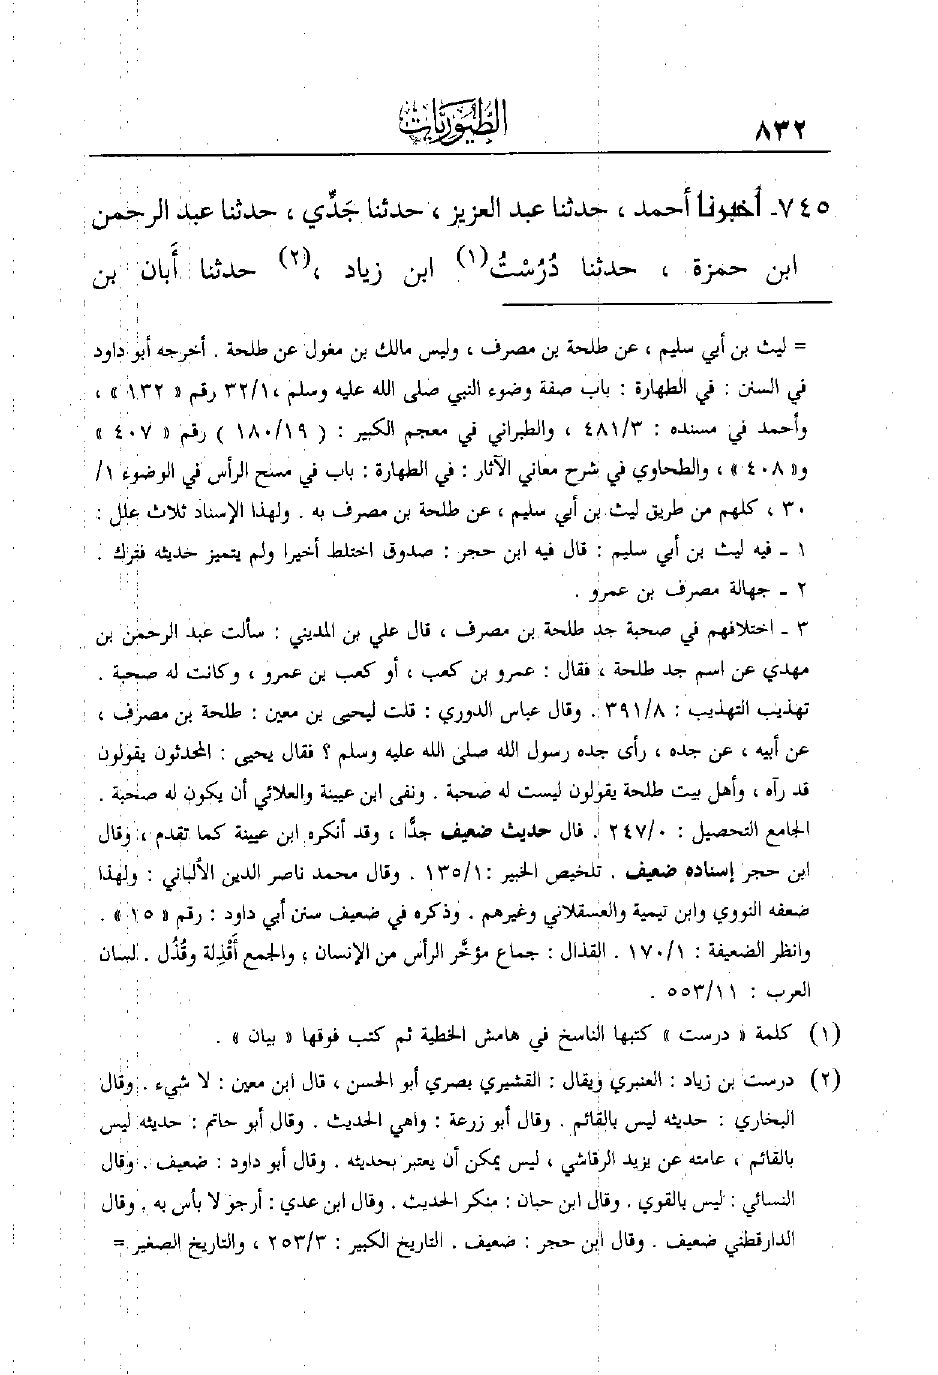 ٨٣٢
الطيوريات
٧٤٥ـ أخبرنا أحمد ، حدثنا عبد العزيز ، حدثنا جَدِّي ، حدثنا عبد الرحمن
ابن حمزة ، حدثنا دُرُسْتُ(١) ابن زياد ،(٢) حدثنا أَبان بن
= ليث بن أبي سليم ، عن طلحة بن مصرف ، وليس مالك بن مغول عن طلحة . أخرجه أبو داود
في السنن : في الطهارة : باب صفة وضوء النبي صلى الله عليه وسلم ،٣٢/١ رقم « ١٣٢ » ،
وأحمد في مسنده : ٤٨١/٣ ، والطبراني في معجم الكبير : ( ١٨٠/١٩ ) رقم « ٤٠٧ »
و« ٤٠٨ » ، والطحاوي في شرح معاني الآثار : في الطهارة : باب في مسح الرأس في الوضوء ١/
٣٠ ، كلهم من طريق ليث بن أبي سليم ، عن طلحة بن مصرف به . ولهذا الإسناد ثلاث علل :
١ ـ فيه ليث بن أبي سليم : قال فيه ابن حجر : صدوق اختلط أخيرا ولم يتميز حديثه فترك .
٢ ـ جهالة مصرف بن عمرو .
٣ ـ اختلافهم في صحبة جد طلحة بن مصرف ، قال علي بن المديني : سألت عبد الرحمن بن
مهدي عن اسم جد طلحة ، فقال : عمرو بن كعب ، أو كعب بن عمرو ، وكانت له صحبة .
تهذيب التهذيب : ٣٩١/٨ . وقال عباس الدوري : قلت ليحيى بن معين : طلحة بن مصرف ،
عن أبيه ، عن جده ، رأى جده رسول الله صلى الله عليه وسلم ؟ فقال يحيى : المحدثون يقولون
قد رآه ، وأهل بيت طلحة يقولون ليست له صحبة . ونفى ابن عيينة والعلائي أن يكون له صحبة .
الجامع التحصيل : ٢٤٧/٠ . قال حديث ضعيف جدًّا ، وقد أنكره ابن عيينة كما تقدم ، وقال
ابن حجر إسناده ضعيف . تلخيص الخبير :١٣٥/١ . وقال محمد ناصر الدين الألباني : ولهذا
ضعفه النووي وابن تيمية والعسقلاني وغيرهم . وذكره في ضعيف سنن أبي داود : رقم « ١٥ » .
وانظر الضعيفة : ١٧٠/١ . القذال : جماع مؤخَّر الرأس من الإنسان ؛ والجمع أَقْذِلة وقُذُل . لسان
العرب : ٥٥٣/١١ .
(١) كلمة « درست » كتبها الناسخ في هامش الخطية ثم كتب فوقها « بيان » .
(٢) درست بن زياد : العنبري ويقال : القشيري بصري أبو الحسن ، قال ابن معين : لا شيء . وقال
البخاري : حديثه ليس بالقائم . وقال أبو زرعة : واهي الحديث . وقال أبو حاتم : حديثه ليس
بالقائم ، عامته عن يزيد الرقاشي ، ليس يمكن أن يعتبر بحديثه . وقال أبو داود : ضعيف . وقال
النسائي : ليس بالقوي . وقال ابن حبان : منكر الحديث . وقال ابن عدي : أرجو لا بأس به . وقال
الدارقطني ضعيف . وقال ابن حجر : ضعيف . التاريخ الكبير : ٢٥٣/٣ ، والتاريخ الصغير =